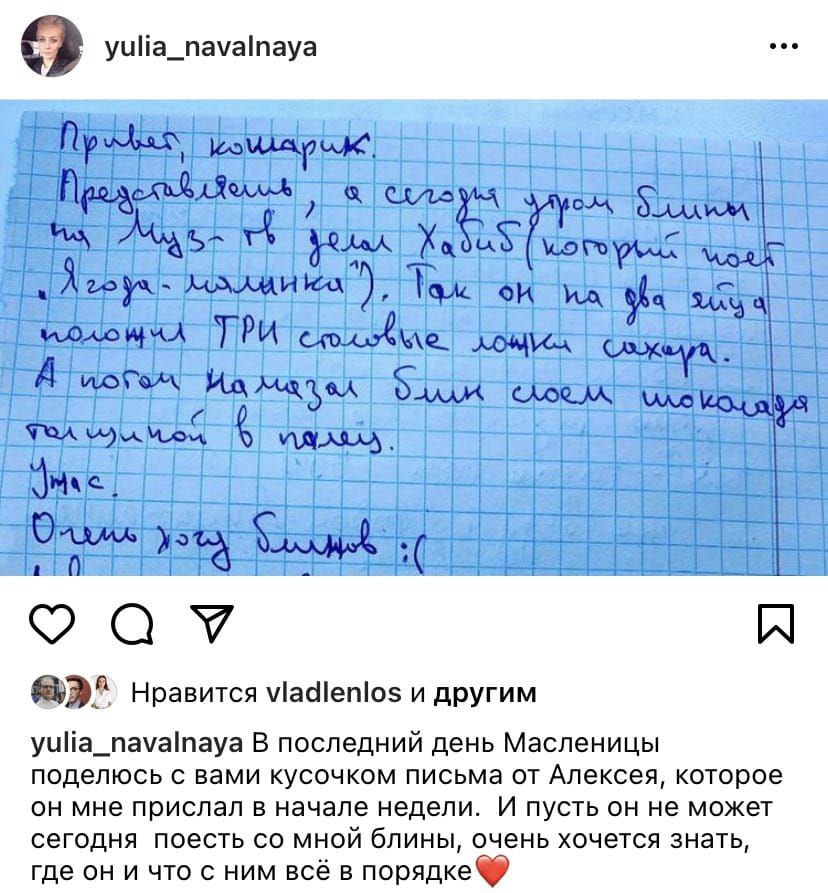 yulia_navalnaya
Привет, кошарик.
Представляешь, а сегодня утром блины
на Муз-тв делал Хабиб (который поёт
„Ягода-малинка"). Так он на два яйца
положил ТРИ столовые ложки сахара.
А потом намазал блин слоем шоколада
толщиной в палец.
Ужас.
Очень хочу блинов :(
Нравится vladlenlos и другим
yulia_navalnaya В последний день Масленицы
поделюсь с вами кусочком письма от Алексея, которое
он мне прислал в начале недели. И пусть он не может
сегодня поесть со мной блины, очень хочется знать,
где он и что с ним всё в порядке❤️